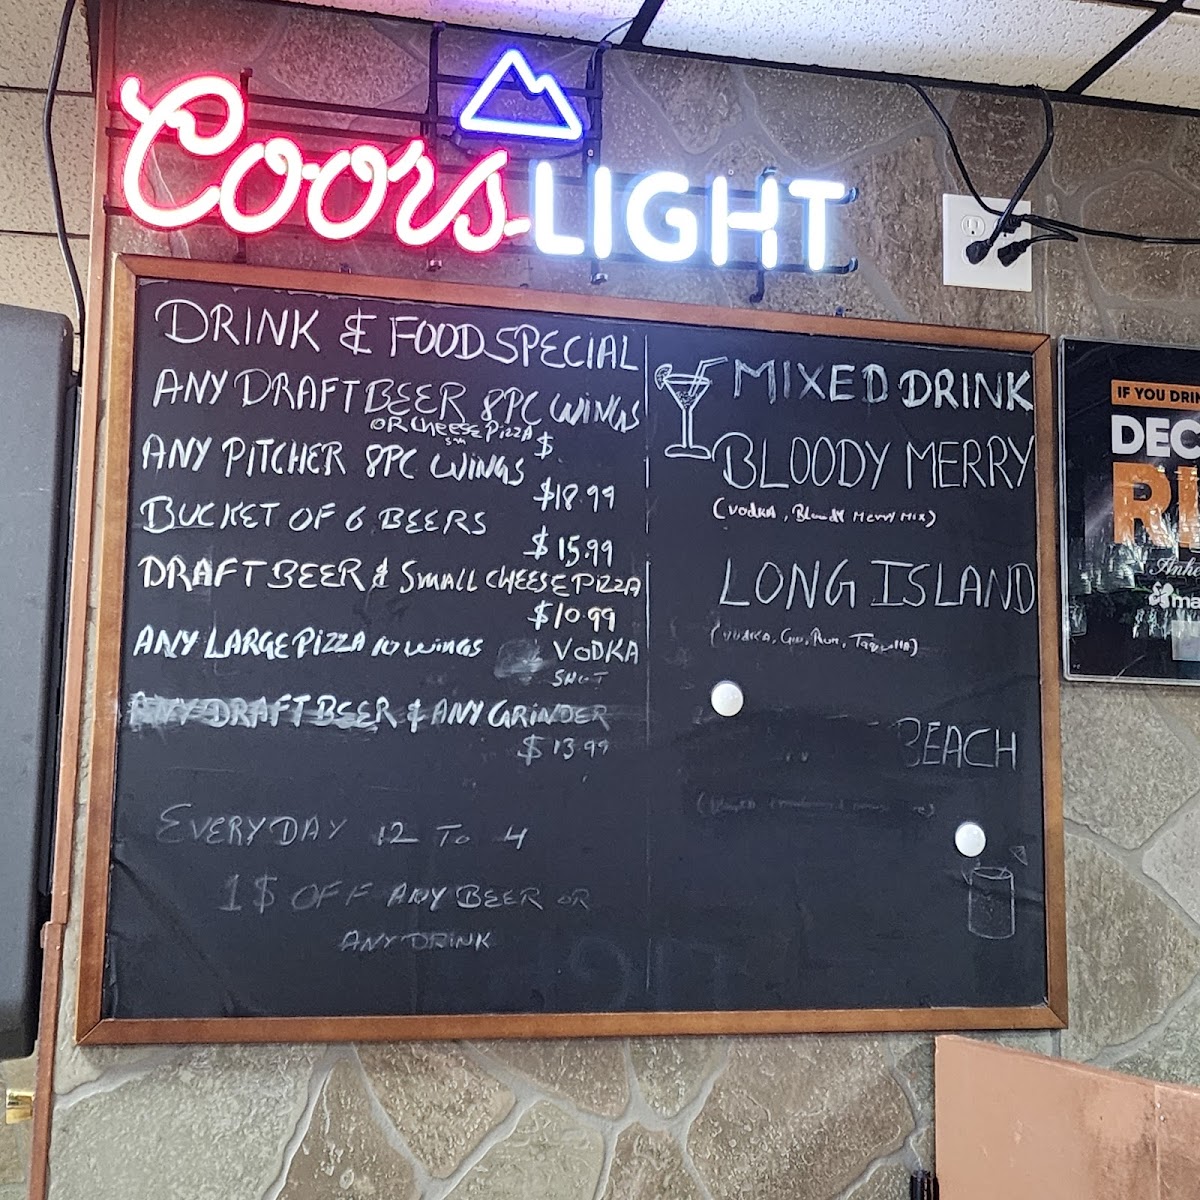 Coors LIGHT
DRINK & FOOD SPECIAL
ANY DRAFT BEER 8PC WINGS
OR CHEESE PIZZA
Sm
$
ANY PITCHER 8PC WINGS
$18.99
BUCKET OF 6 BEERS
$15.99
DRAFT BEER & SMALL CHEESE PIZZA
$10.99
ANY LARGE PIZZA 10 WINGS VODKA
SHOT
ANY DRAFT BEER & ANY GRINDER
$13.99
EVERYDAY 12 TO 4
1$ OFF ANY BEER OR
ANY DRINK
MIXED DRINK
BLOODY MERRY
(VODKA, Bloody Merry Mix)
LONG ISLAND
(VODKA, Gin, Rum,
BEACH
IF YOU DRIN
DEC
RI
Anhe
ma